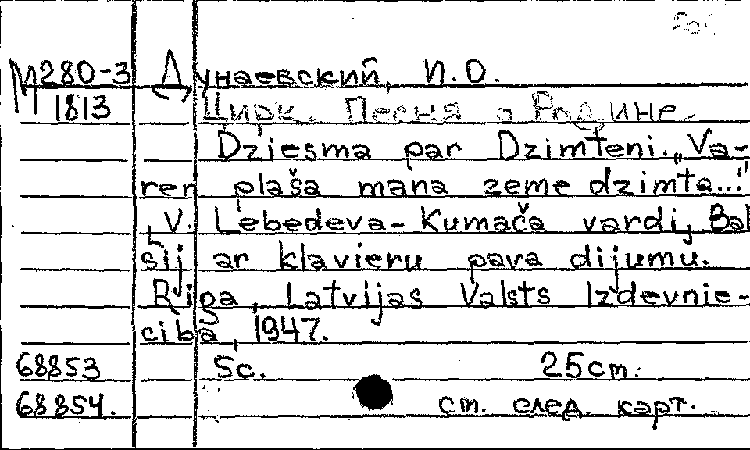 М280-3 Дунаевский, И.О.
1813 Цирк. Песня о Родине.
Dziesma par Dzimteni. „Va-
ren plaša mana zeme dzimta..."
V. Lebedeva-Kumača vardi, Bal
sij ar klavieru pavadijumu.
Riga, Latvijas Valsts Izdevnie-
ciba, 1947.
68853 5c. 25cm.
68854. ст. след. карт.